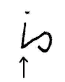 is
↑